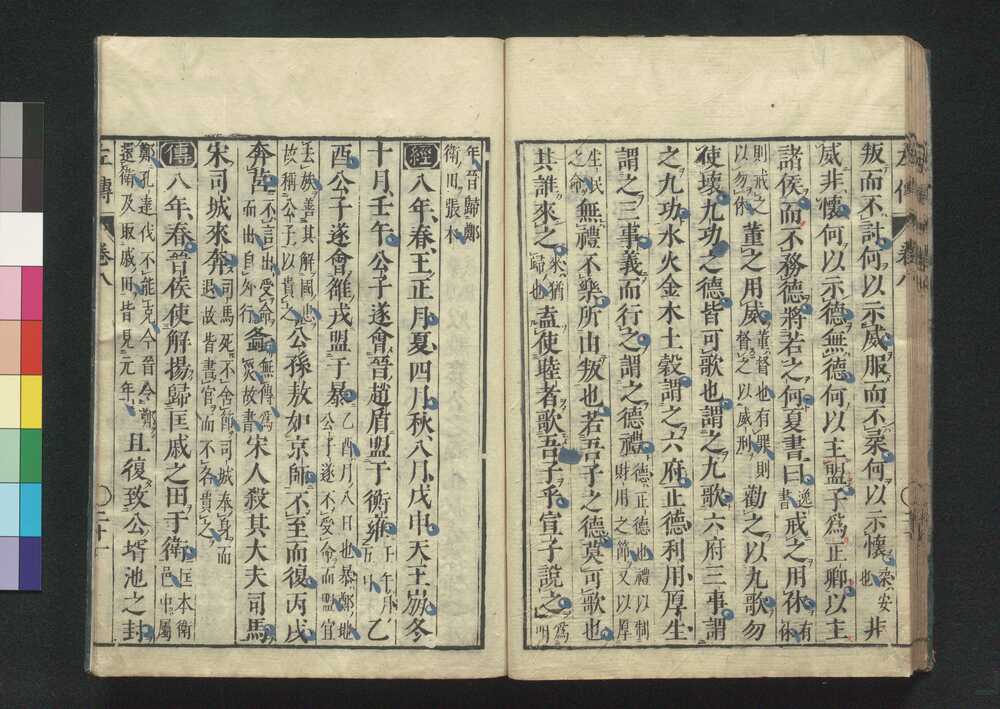 叛而不討何以示威服而不柔何以示懷柔安也非
威非懷何以示德無德何以主盟子爲正卿以主
諸侯而不務德將若之何夏書曰逸書戒之用休有休
則戒之以勿休董之用威董督也有罪則督之以威刑勸之以九歌勿
使壞九功之德皆可歌也謂之九歌六府三事謂
之九功水火金木土穀謂之六府正德利用厚生
謂之三事義而行之謂之德禮德正德也禮以制財用之節又以厚
生民之命無禮不樂所由叛也若吾子之德莫可歌也
其誰來之來猶歸也盍使睦者歌吾子乎宣子說之爲明
年晉歸鄭衛田張本
經八年春王正月夏四月秋八月戊申天王崩冬
十月壬午公子遂會晉趙盾盟于衡雍壬午月五日乙
酉公子遂會雒戎盟于暴乙酉月八日也暴鄭地公子遂不受命而盟宜
去族善其解國患故稱公子以貴之公孫敖如京師不至而復丙戌
奔莒不言出受命而出自外行螽無傳爲災故書宋人殺其大夫司馬
宋司城來奔司馬死不舍節司城奉身而退故皆書官而不名貴之
傳八年春晉侯使解揚歸匡戚之田于衛匡本衛邑中屬
鄭孔達伐不能克今晉令鄭還衛及取戚田皆見元年且復致公壻池之封
左傳
卷八
二十一